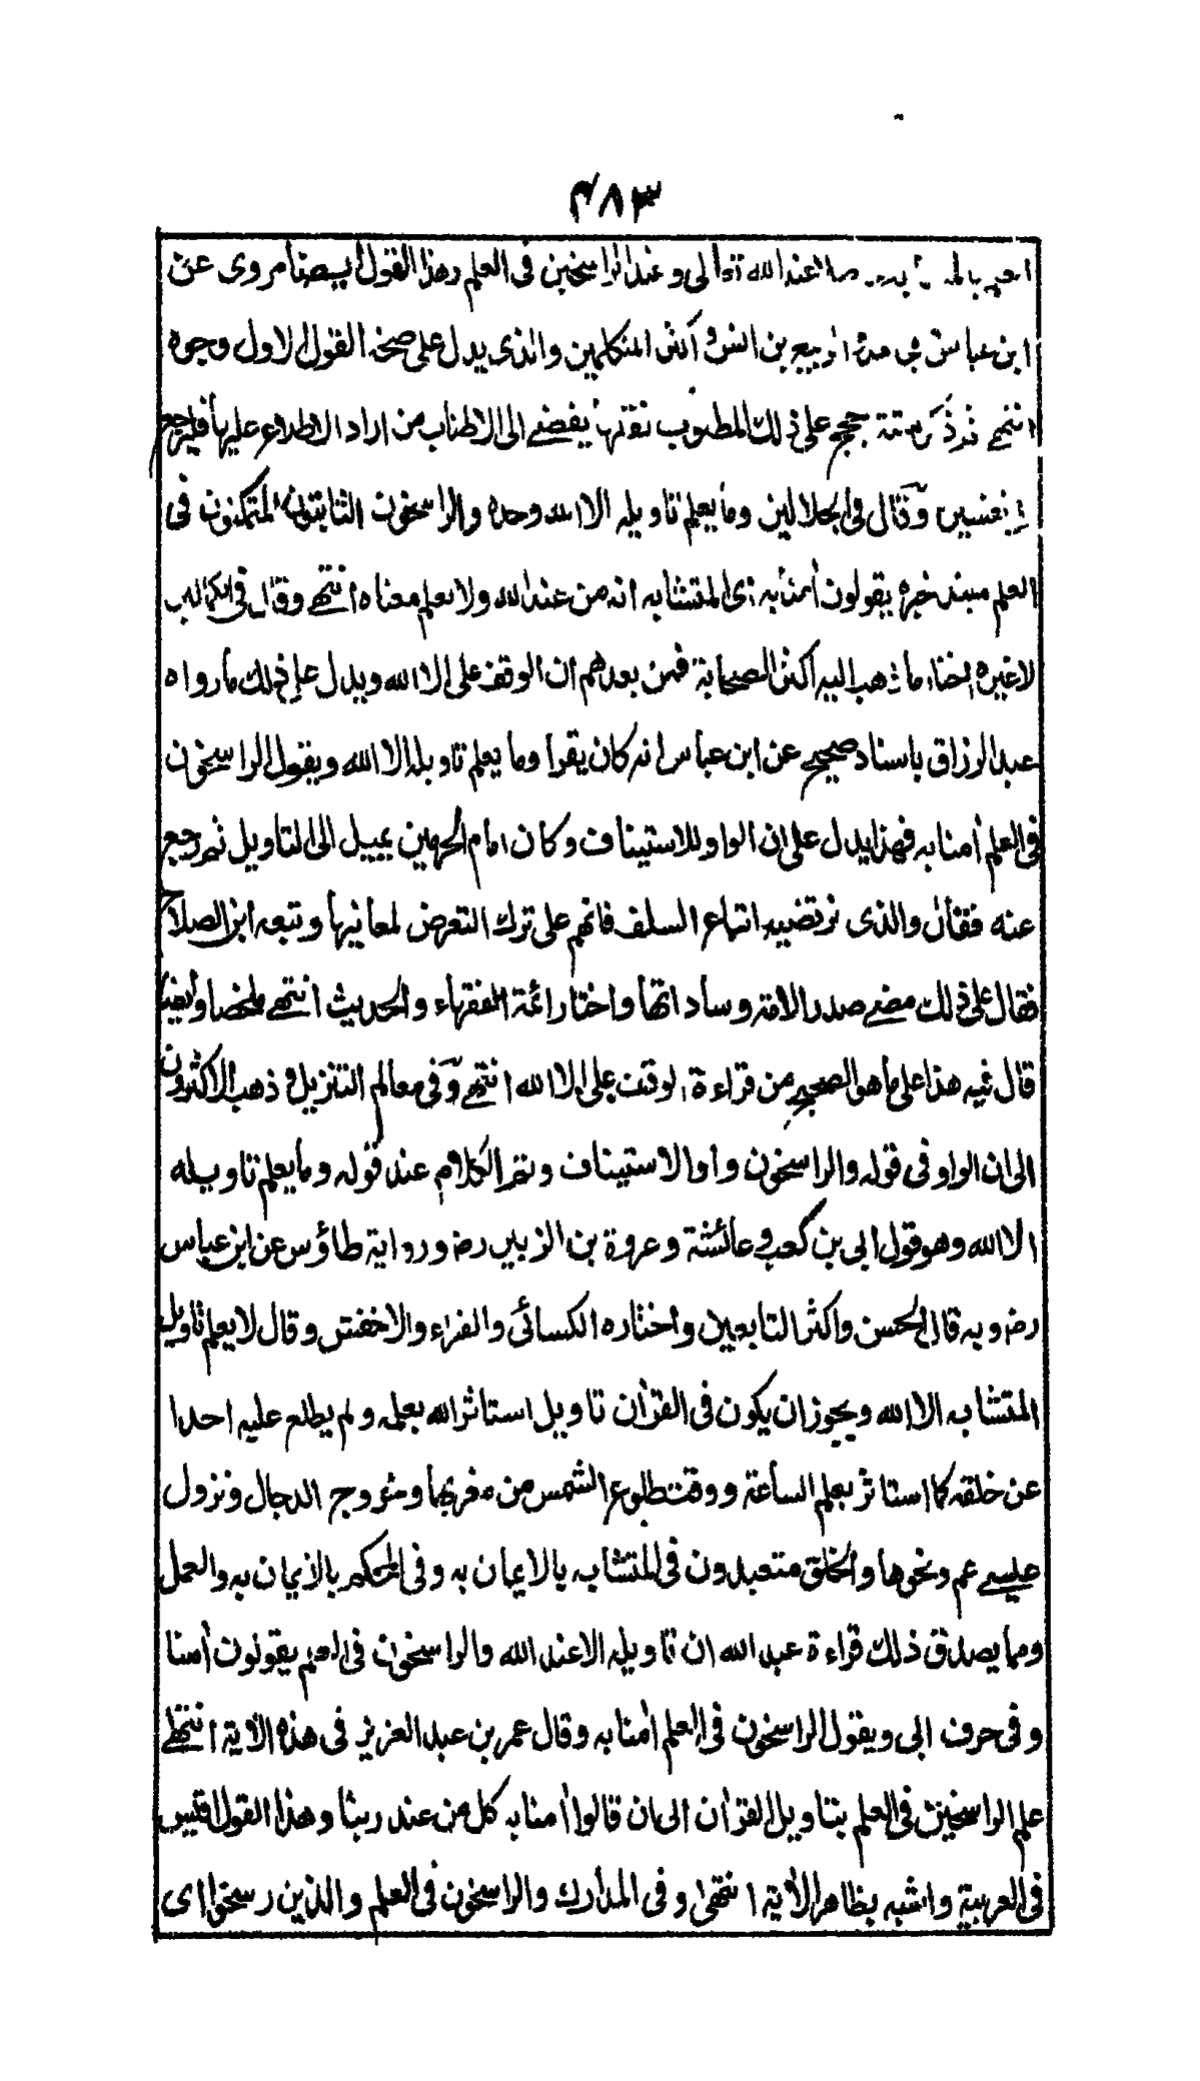 ۴۸۳
عند الله تعالى وعند الراسخين فى العلم وهذا القول ايضا مروى عن
ابن عباس الربيع بن انس واكثر المتكلمين والذى يدل على صحة القول الاول وجوه
انتهے ثم ذكر ستة حجج على ذلك المطلوب نقلها يفضے الى الاطناب من اراد الاطلاع عليها فليرجع
وقال فى الجلالين وما يعلم تاويله الا الله وحده والراسخون الثابتون المتمكنون فى
العلم مبتدا خبره يقولون اٰمنا به اى المتشابه انه من عند الله ولا نعلم معناه انتهے وقال فى الكمالين
لا غيره المختار ما ذهب اليه اكثر الصحابة فمن بعدهم ان الوقف على الا الله ويدل على ذلك ما رواه
عبد الرزاق باسناد صحيح عن ابن عباس انه كان يقرا وما يعلم تاويله الا الله ويقول الراسخون
فى العلم اٰمنا به فهذا يدل على ان الواو للاستيناف وكان امام الحرمين يميل الى التاويل ثم رجع
عنه فقال والذى نرتضيه اتباع السلف فانهم على ترك التعرض لمعانيها وتبعه ابن الصلاح
فقال على ذلك مضے صدر الامة وساداتها واختار ائمة الفقهاء والحديث انتهے ملخصا وايضا
قال فيه هذا على ما هو الصحيح من قراءة الوقف على الا الله انتهے وفى معالم التنزيل وذهب الاكثرون
الى ان الواو فى قوله والراسخون واو الاستيناف وتم الكلام عند قوله وما يعلم تاويله
الا الله وهو قول ابى بن كعب وعائشة وعروة بن الزبير رضہ ورواية طاؤس عن ابن عباس
رضہ وبه قال الحسن واكثر التابعين واختاره الكسائى والفراء والاخفش وقال لا يعلم تاويل
المتشابه الا الله ويجوز ان يكون فى القراٰن تاويل استاثر الله بعلمه ولم يطلع عليه احدا
من خلقه كما استاثر بعلم الساعة ووقت طلوع الشمس من مغربها وخروج الدجال ونزول
عيسے عم ونحوها والخلق متعبدون فى المتشابه بالايمان به وفى المحكم بالايمان به والعمل
ومما يصدق ذلك قراءة عبد الله ان تاويله الا عند الله والراسخون فى العلم يقولون اٰمنا
وفى حرف ابى ويقول الراسخون فى العلم اٰمنا به وقال عمر بن عبد العزيز فى هذه الاٰية انتهےٰ
علم الراسخين فى العلم بتاويل القراٰن الى ان قالوا اٰمنا به كل من عند ربنا وهذا القول اقيس
فى العربية واشبه بظاهر الاٰية انتهى وفى المدارك والراسخون فى العلم والذين رسخوا اى